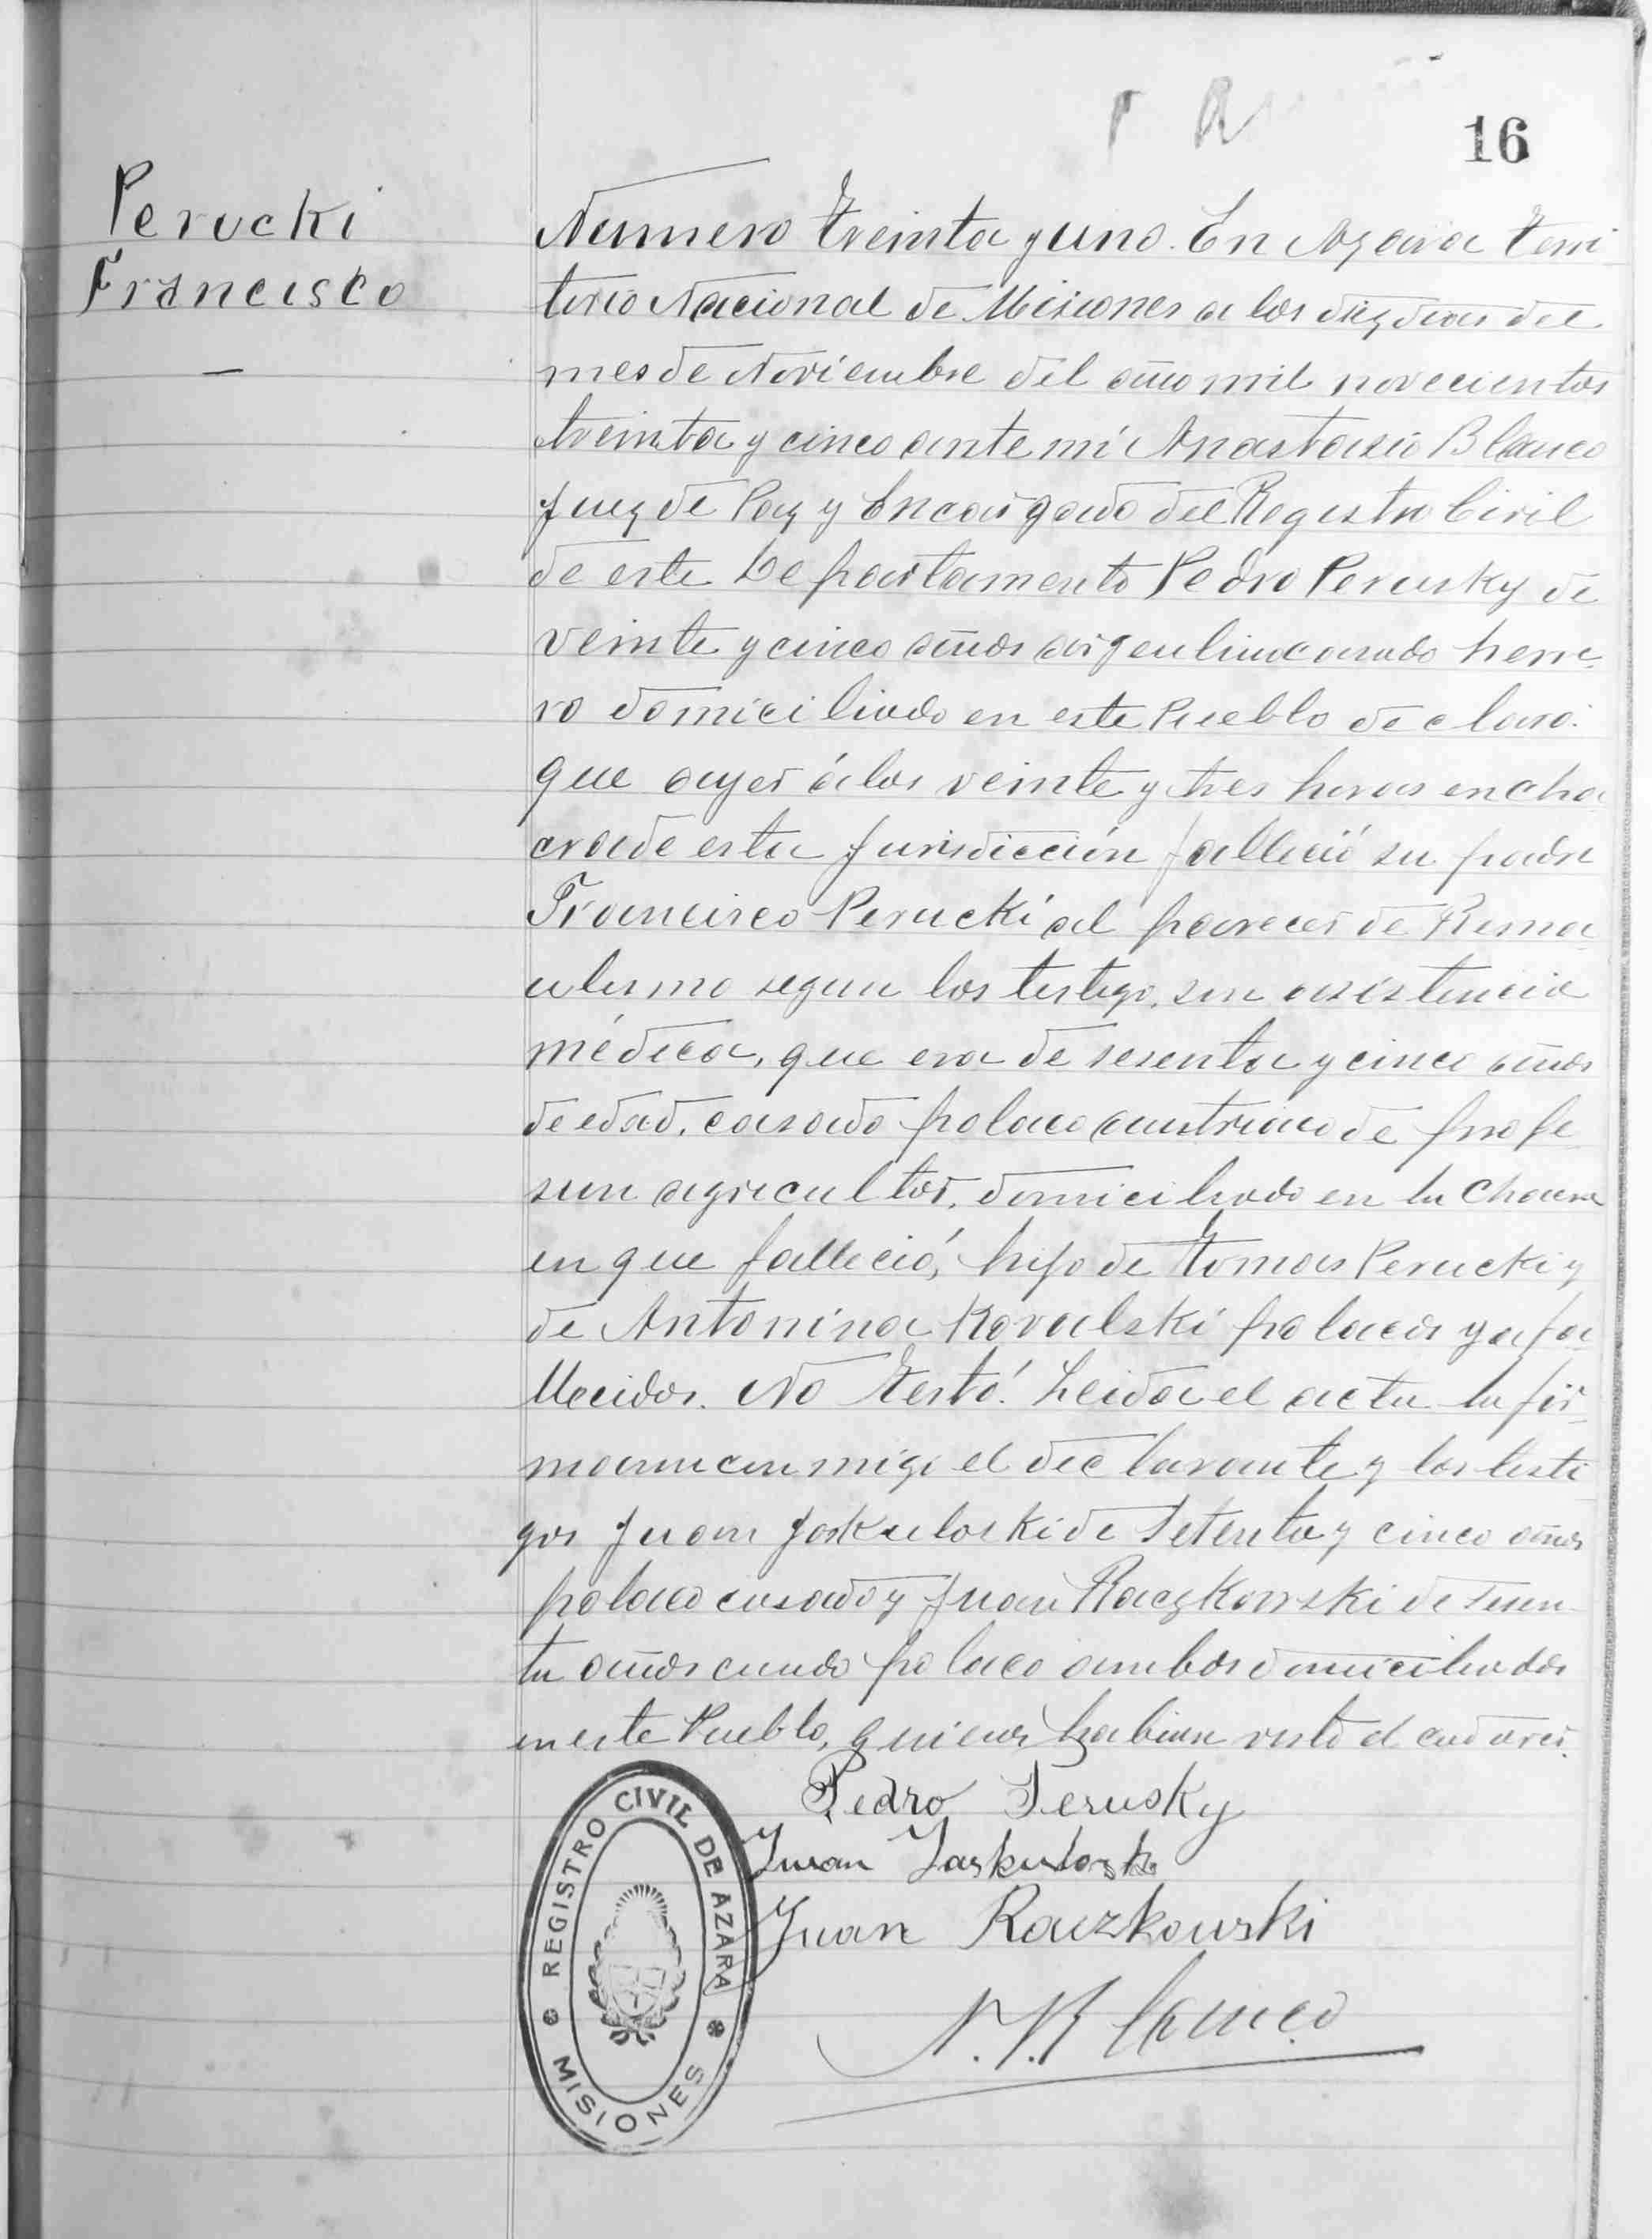 16
Perucki
Francisco
Numero treinta y uno. En Azara Terri
torio Nacional de Misiones a los diez dias del
mes de Noviembre del año mil novecientos
treinta y cinco ante mi Anastasio Blanco
Juez de Paz y Encargado del Registro Civil
de este Departamento Pedro Perusky de
veinte y cinco años argentino casado herre
ro domiciliado en este Pueblo declaro:
que ayer á las veinte y tres horas en cha
cra de esta Jurisdicción falleció su padre
Francisco Perucki al parecer de Rema
tismo segun los testigo, sin asistencia
médica, que era de sesenta y cinco años
de edad, casado polaco austriaco de profe
sion agricultor, domiciliado en la Chacra
en que falleció, hijo de Tomas Perucki y
de Antonina Kovalski polacos ya fa
llecidos. No Testó. Leida el acta la fir
maron conmigo el declarante y los testi
gos Juan Jaskuloski de setenta y cinco años
polaco casado y Juan Raczkowski de sesen
ta años casado polaco ambos domiciliados
en este Pueblo, quienes habian visto el cadaver.
Pedro Perusky
Juan Jaskuloski
Juan Raczkowski
A. Blanco
REGISTRO CIVIL DE AZARA
MISIONES